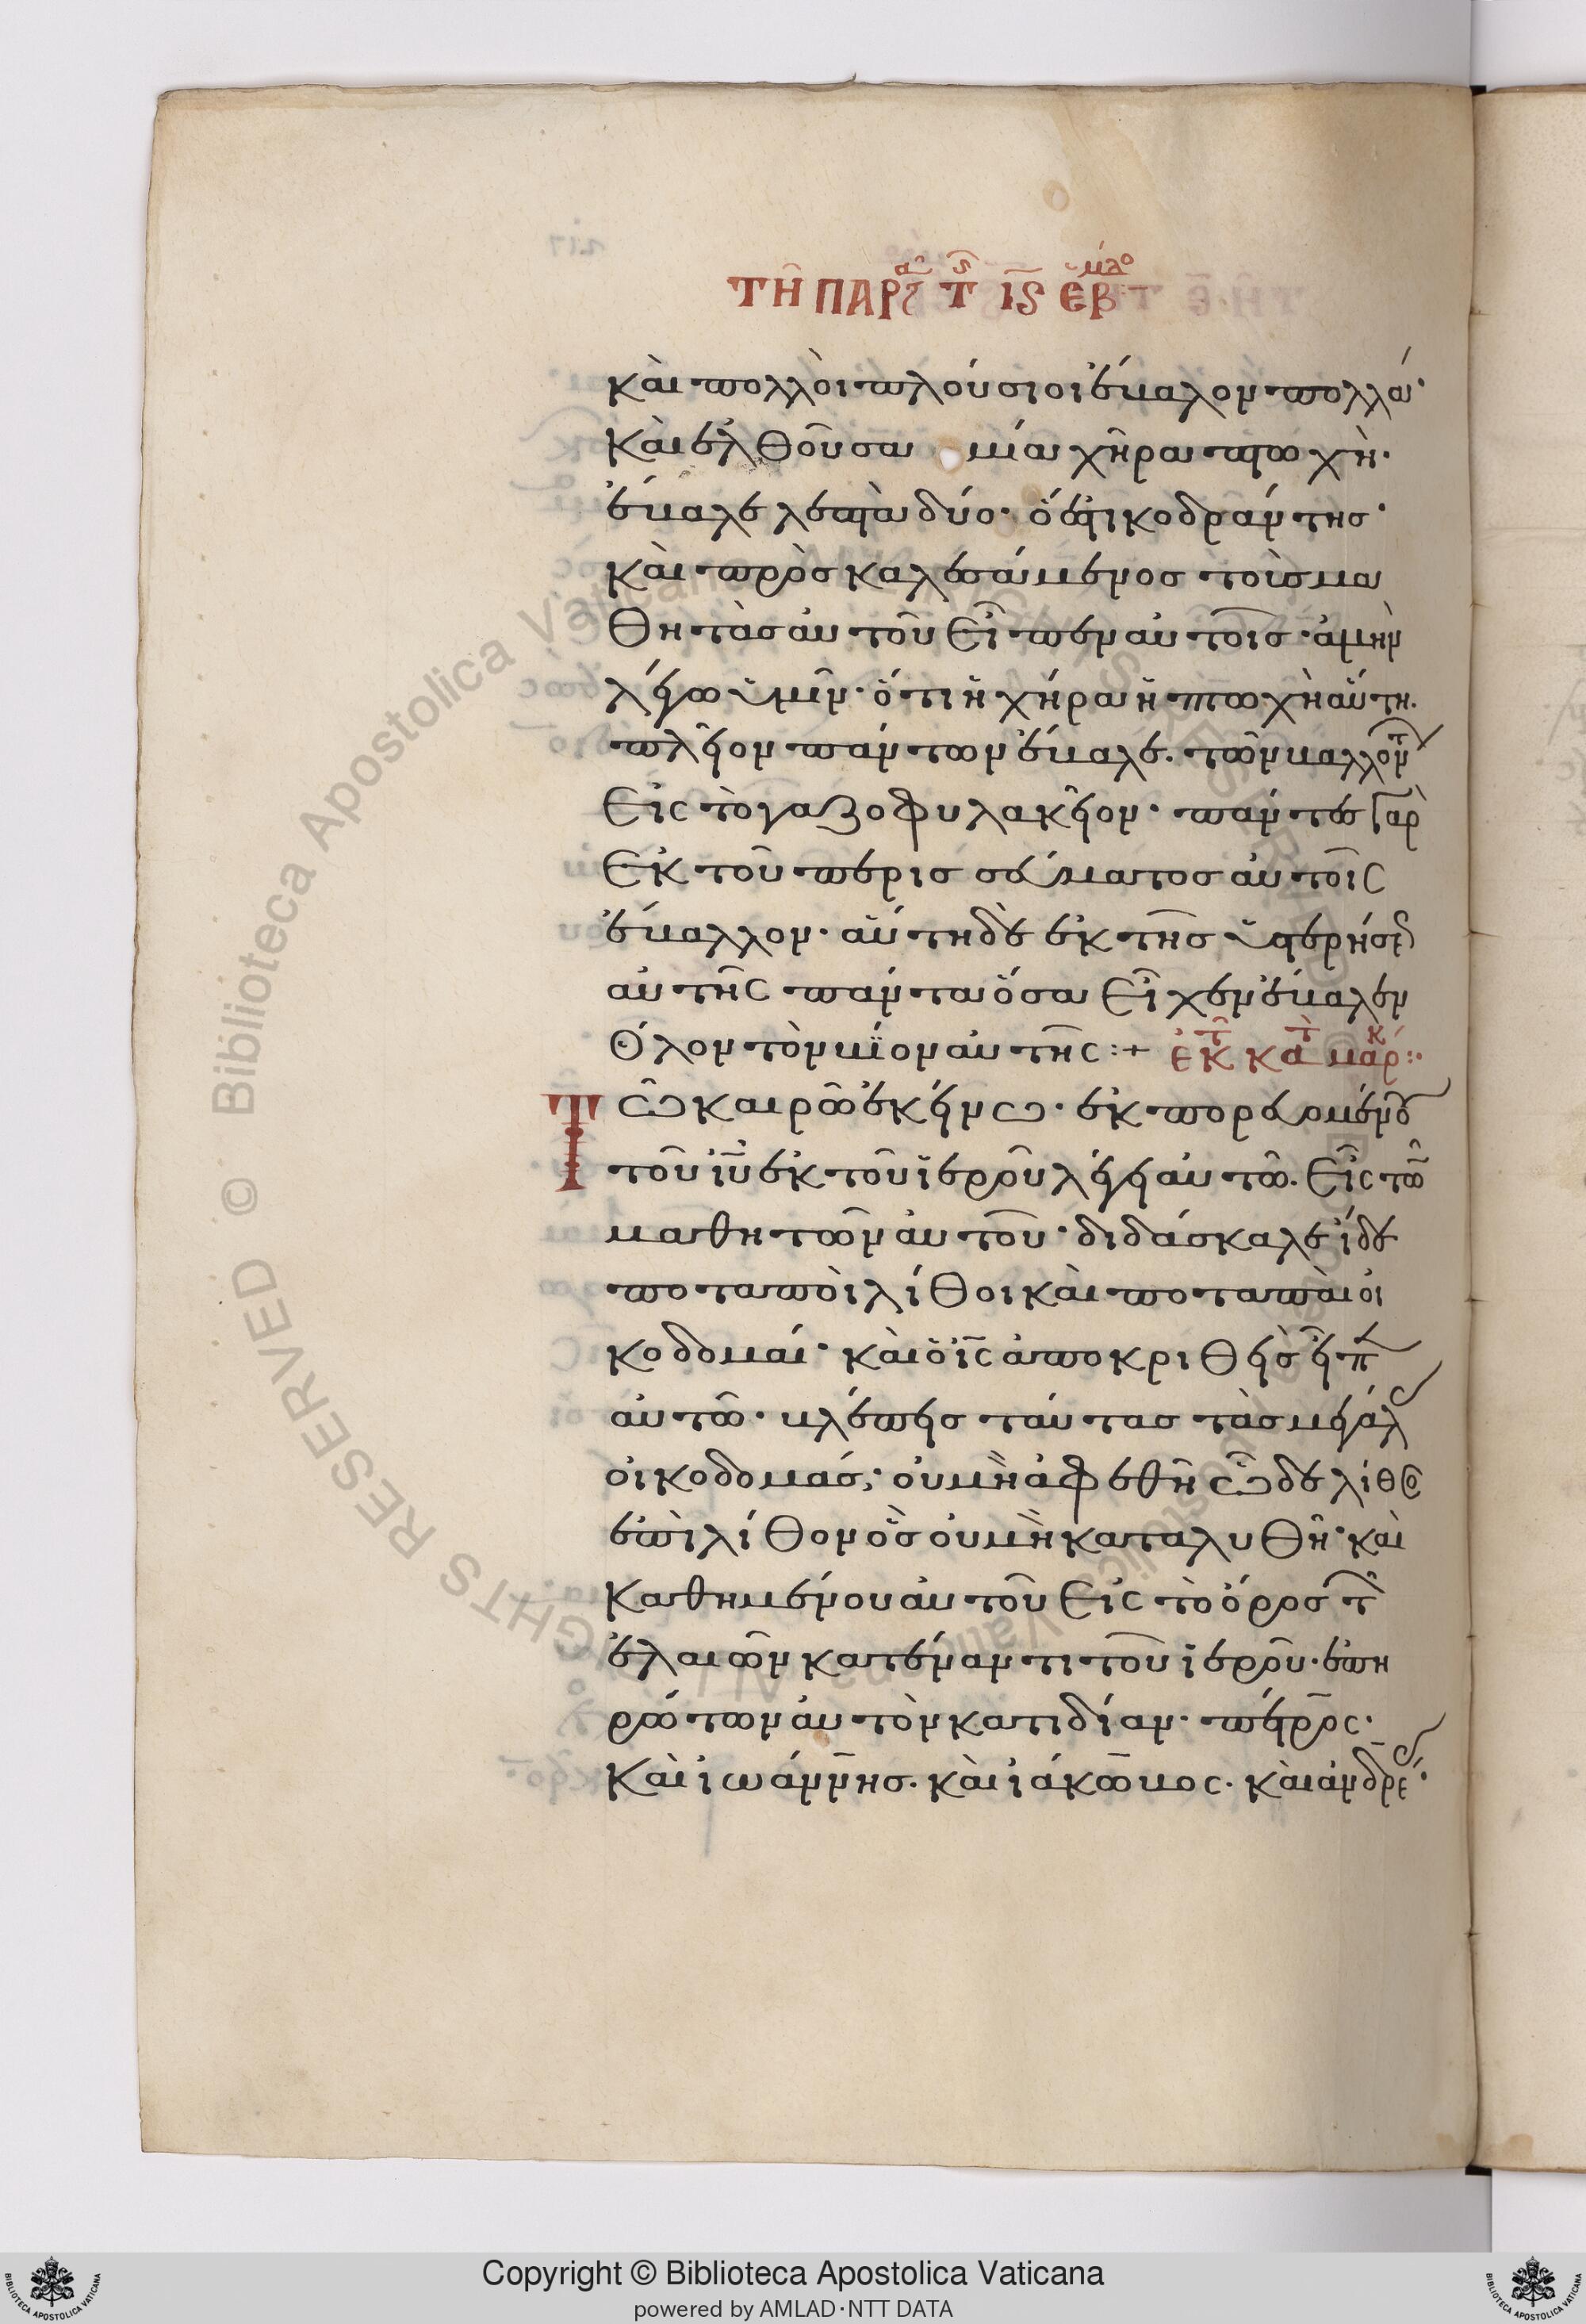 τῆ παρ(ας) τ ις ἑβδομάδο
καὶ πολλοὶ πλούσιοι ἔβαλον πολλά·
καὶ ἐλθοῦσα μία χῆρα πτωχὴ·
ἔβαλε λεπτὰ δύο· ὅ ἐστι κοδράντης·
καὶ προσκαλεσάμενος τοὺς μα
θητὰς αὐτοῦ εἶπεν αὐτοῖς· ἀμὴν
λέγω ὑμῖν· ὅτι ἡ χήρα ἡ πτωχὴ αὕτη.
πλεῖον πάντων ἔβαλε. τῶν βαλλόντ
εἰς τὸ γαζοφυλακεῖον· πάντες γὰρ
ἐκ τοῦ περισσεύματος αὐτοῖς
ἔβαλλον· αὕτη δὲ ἐκ τῆς ὑστερήσε
αὐτῆς πάντα ὅσα εἶχεν ἔβαλεν
ὅλον τὸν βίον αὐτῆς :+ ἐκ τ κατ μάρκ :·
Τῶ καιρῶ ἐκείνω· ἐκπορευομένου
τοῦ ἰῦ ἐκ τοῦ ἱεροῦ λέγει αὐτῶ. εἷς τῶν
μαθητῶν αὐτοῦ· διδάσκαλε ἴδε
ποταποὶ λίθοι καὶ ποταπαὶ οἰ
κοδομαί· καὶ ὁ ἰς ἀποκριθεὶς εἶπ
αὐτῶ· βλέπεις ταύτας τὰς μεγάλ
οἰκοδομάς; οὐ μὴ ἀφεθῆ ὧδε λίθος
ἐπὶ λίθον ὃς οὐ μὴ καταλυθῆ· καὶ
καθημένου αὐτοῦ εἰς τὸ ὄρος τ
ἐλαιῶν κατέναντι τοῦ ἱεροῦ· ἐπη
ρώτων αὐτὸν κατιδίαν· πέτρος·
καὶ ἰωάννης. καὶ ἰάκωβος. καὶ ἀνδρέ·
Copyright © Biblioteca Apostolica Vaticana
powered by AMLAD·NTT DATA